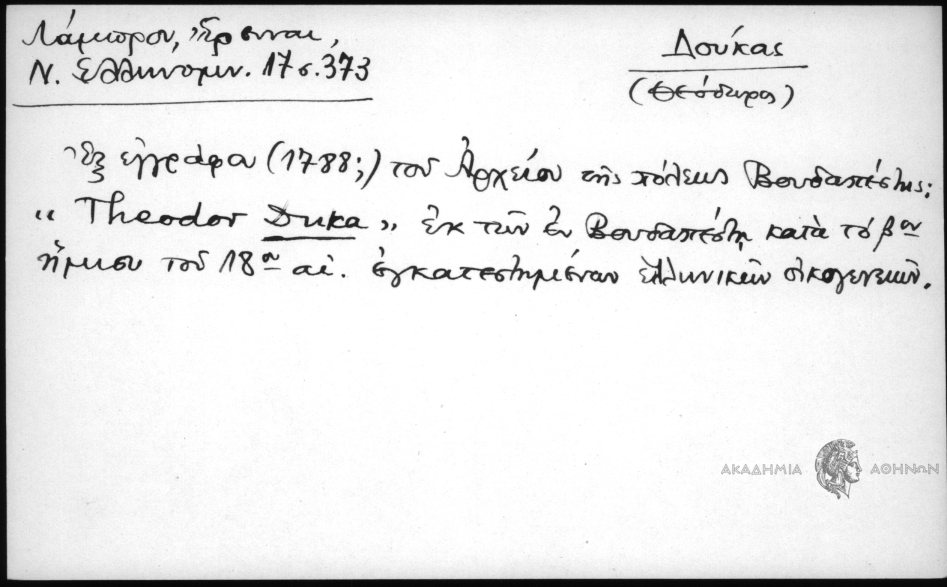 Λάμπρου, Ἔρευναι,
Ν. Ἑλληνομν. 17 σ. 373
Δούκας
(Θεόδωρος)
Ἐξ ἐγγράφου (1788;) τοῦ Ἀρχείου τῆς πόλεως Βουδαπέστης:
“ Theodor Duka ” ἐκ τῶν ἐν Βουδαπέστῃ κατὰ τὸ βον
ἥμισυ τοῦ 18ου αἰ. ἐγκατεστημένων ἑλληνικῶν οἰκογενειῶν.
ΑΚΑΔΗΜΙΑ ΑΘΗΝΩΝ